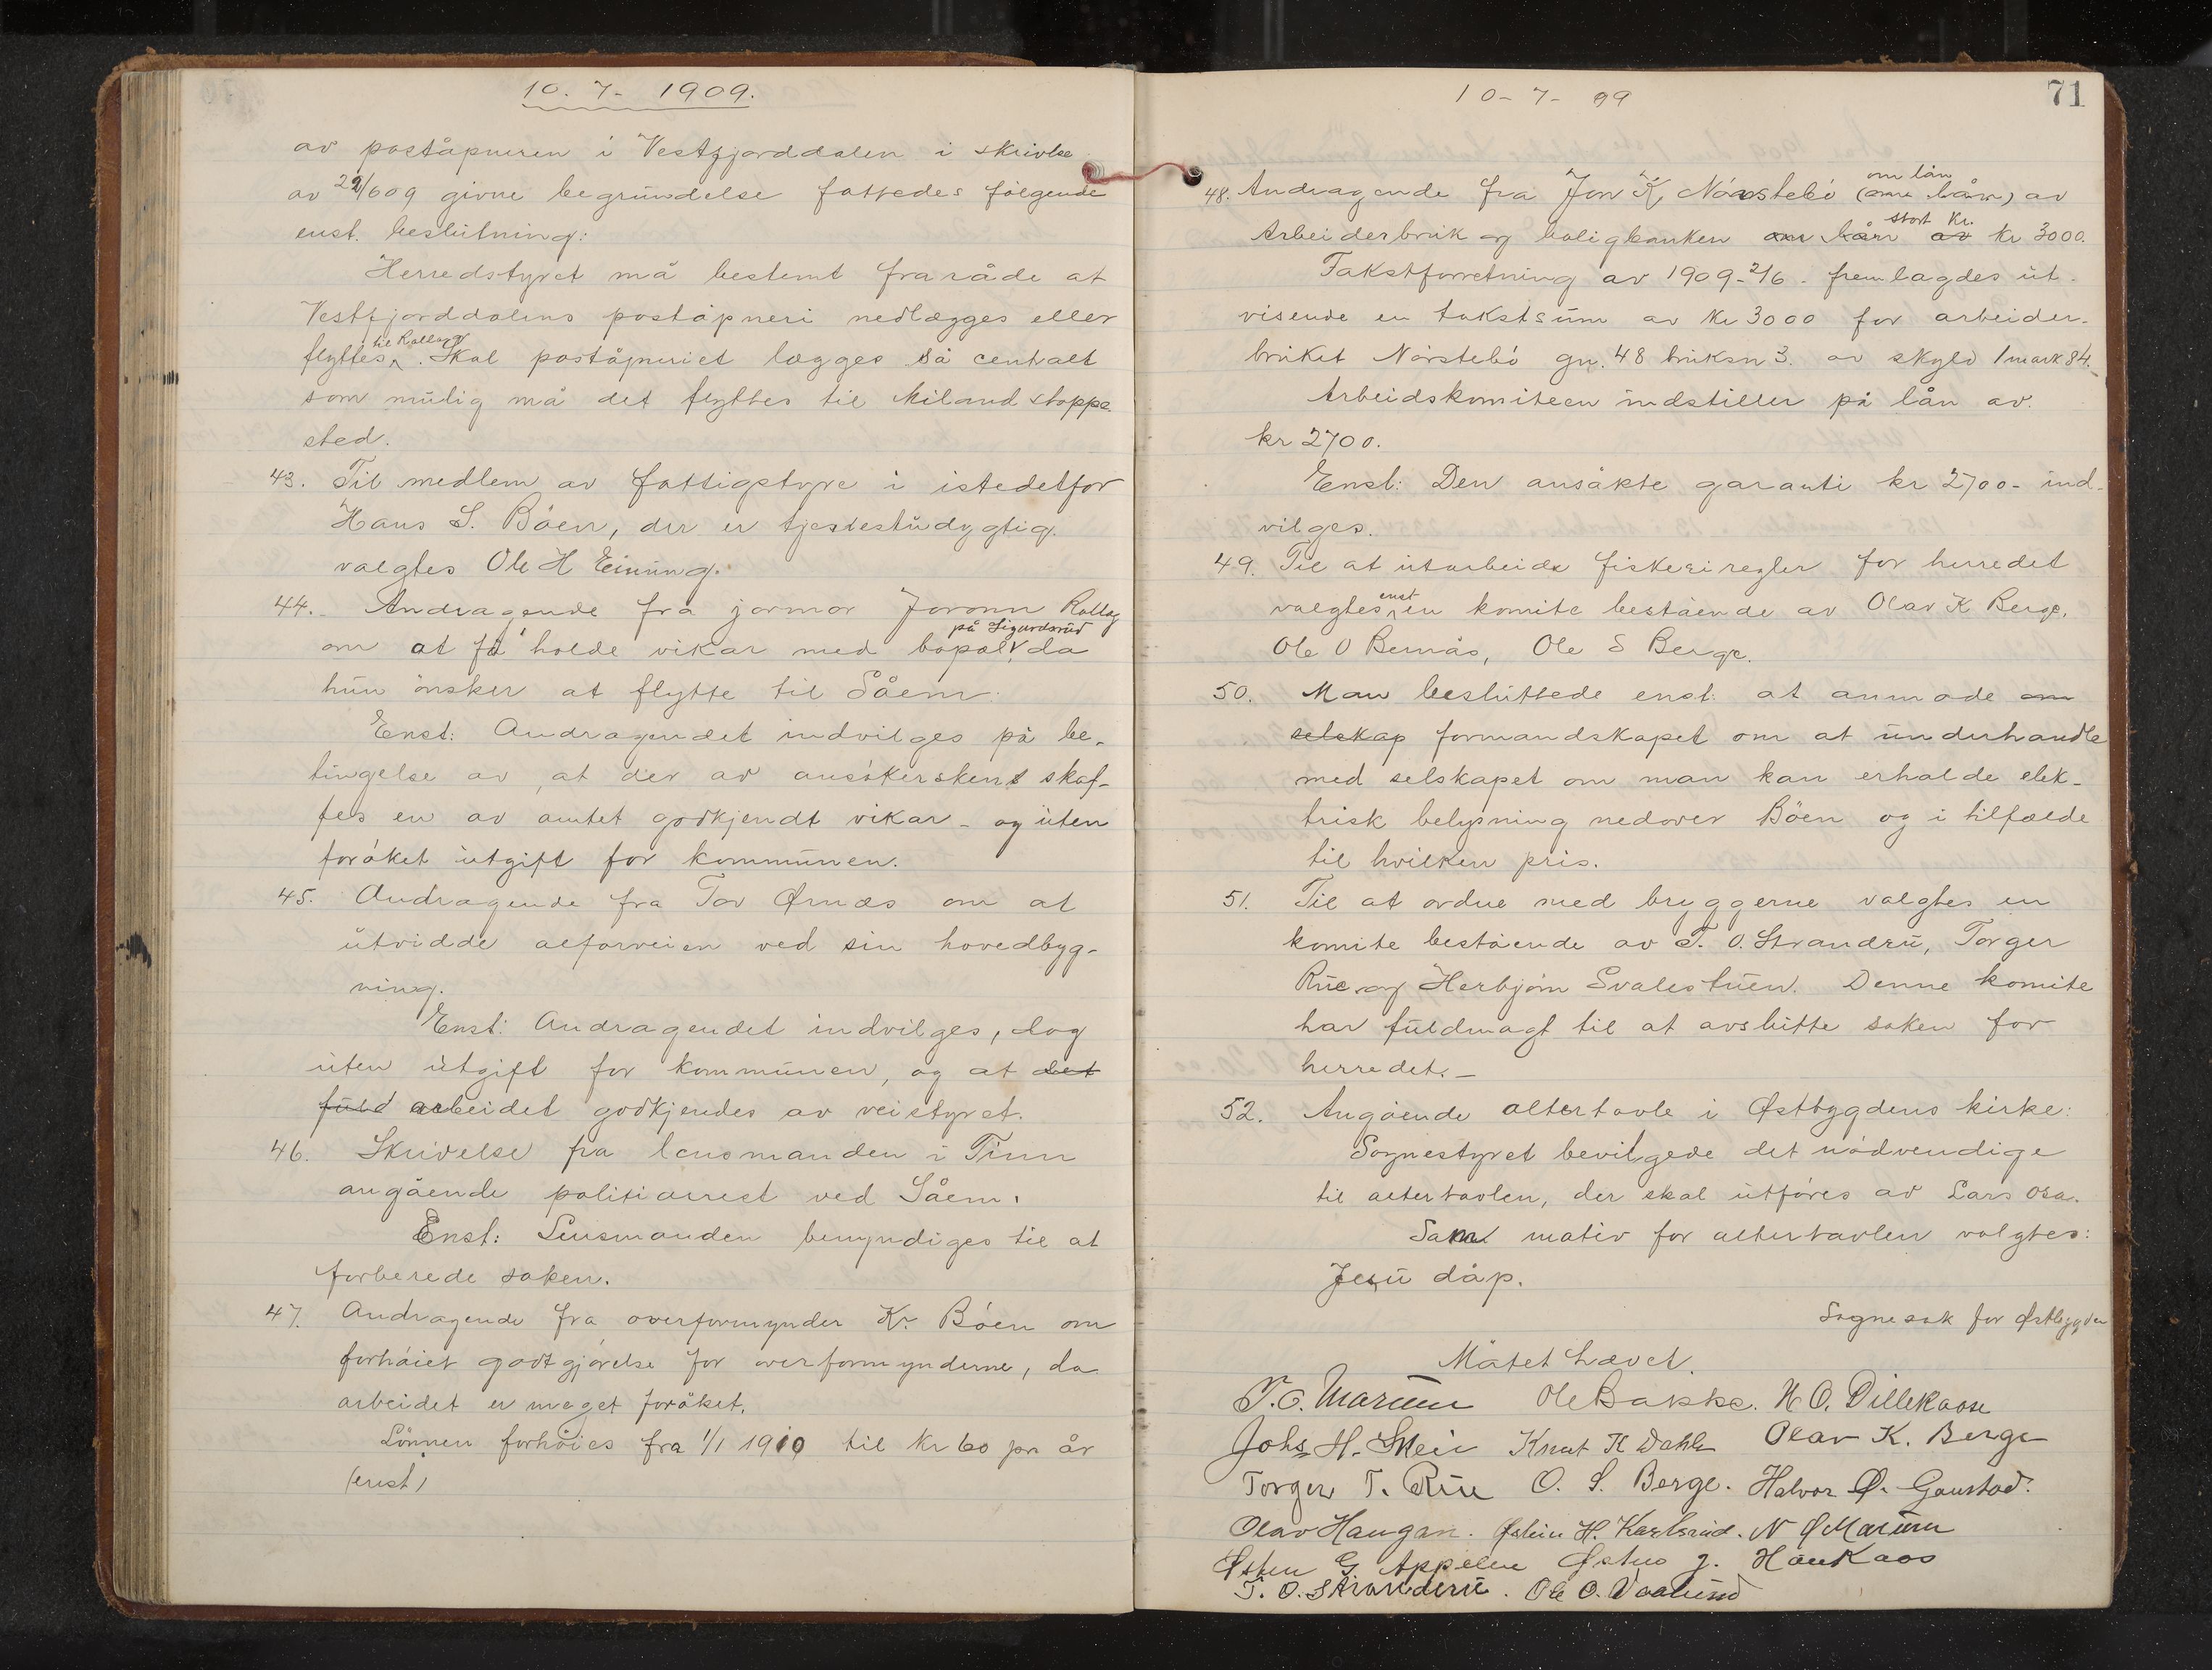 10. 7 - 1909.
av poståpneren i Vestfjorddalen i skrivlse
av 22/6 09 givne begrundelse fattedes følgende
enst. beslutning:
Herredstyret må bestemt fraråde at
Vestfjorddalens poståpneri nedlægges eller
flyttes til Rollag. Skal poståpneriet lægges så centralt
som mulig må det flyttes til Miland stoppe-
sted.
43. Til medlem av fattigstyre i istedetfor
Hans S. Bøen, der er tjestestudygtig.
valgtes Ole H Einung.
44. Andragende fra jormor Joronn Rollag
om at få holde vikar med bopæl på Sigurdsrud, da
hun ønsker at flytte til Såem.
Enst: Andragendet indvilges på be-
tingelse av, at der av ansøkersken skaf-
fes en av amtet godkjendt vikar - og uten
forøket utgift for kommunen.
45. Andragende fra Tov Ørnæs om at
utvidde alfarveien ved sin hovedbyg-
ning.
Enst: Andragendet indvilges, dog
uten utgift for kommunen, og at det
fuld arbeidet godkjendes av veistyret.
46. Skrivelse fra lensmanden i Tinn
angående politiarrest ved Såem.
Enst: Lensmanden bemyndiges til at
forberede saken.
47. Andragende fra overformynder Kr. Bøen om
forhøiet godtgjørelse for overformynderne, da
arbeidet er meget forøket.
Lønnen forhøies fra 1/1 1910 til kr 60 pr år
(enst)
71
10 - 7 - 09
48. Andragende fra Jon K. Nørstebø (om lån) av
Arbeiderbruk og boligbanken om lån av stort kr. kr 3000.
Takstforretning av 1909 - 2/6 - fremlagdes ut-
visende en takstsum av kr 3000 for arbeider-
bruket Nørstebø gn. 48 bruksn 3. av skyld 1 mark 84.
Arbeidskomiteen indstiller på lån av
kr 2700.
Enst: Den ansøkte garanti kr 2700 - ind-
vilges.
49. Til at utarbeide fiskeriregler for herredet
valgtes enst en komite bestående av Olav K Berge,
Ole O Bernås, Ole S Berge.
50. Man besluttede enst: at anmode om
selskap formandskapet om at underhandle
med selskapet om man kan erholde elek-
trisk belysning nedover Bøen og i tilfælde
til hvilken pris.
51. Til at ordne med bryggerne valgtes en
komite bestående av T. O. Strandru, Torger
Rue og Herbjørn Svalestuen. Denne komite
har fuldmagt til at avslutte saken for
herredet. -
52. Angående altertavle i Østbygdens kirke:
Sognestyret bevilgede det nødvendige
til altertavlen, der skal utføres av Lars Osa.
Som motiv for altertavlen valgtes:
Jesu dåp.
Sognesak for Østbygden
Møtet hævet.
T. O. Marum Ole Bakke. H O. Dillekaase
Johs H. Skeie Knut K Dahle Olav K. Berge
Torger T. Rue O. S. Berge. Halvor Ø. Gaustad.
Olav Haugan. Østein H. Karlsrud. N Ø Marum
Østen G Appelen Østen J. Haukaas
T. O. Stranderu. Ole O. Vaalund